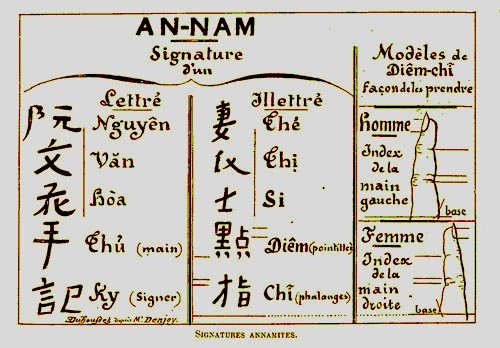 AN-NAM
Signature
d'un
Lettré
阮 Nguyên
文 Văn
花 hòa
手 Thủ (main)
記 Ky (Signer)
Illettré
妻 Thê
Thị
士 Si
點 Diêm (pointiller)
指 Chỉ (phalanges)
Modèles de
Diêm-chỉ
façon de les prendre
homme
Index
de la
main
gauche
base
Femme
Index
de la
main
droite
base
Duhousset d'après Mr Denjoy.
SIGNATURES ANNAMITES.